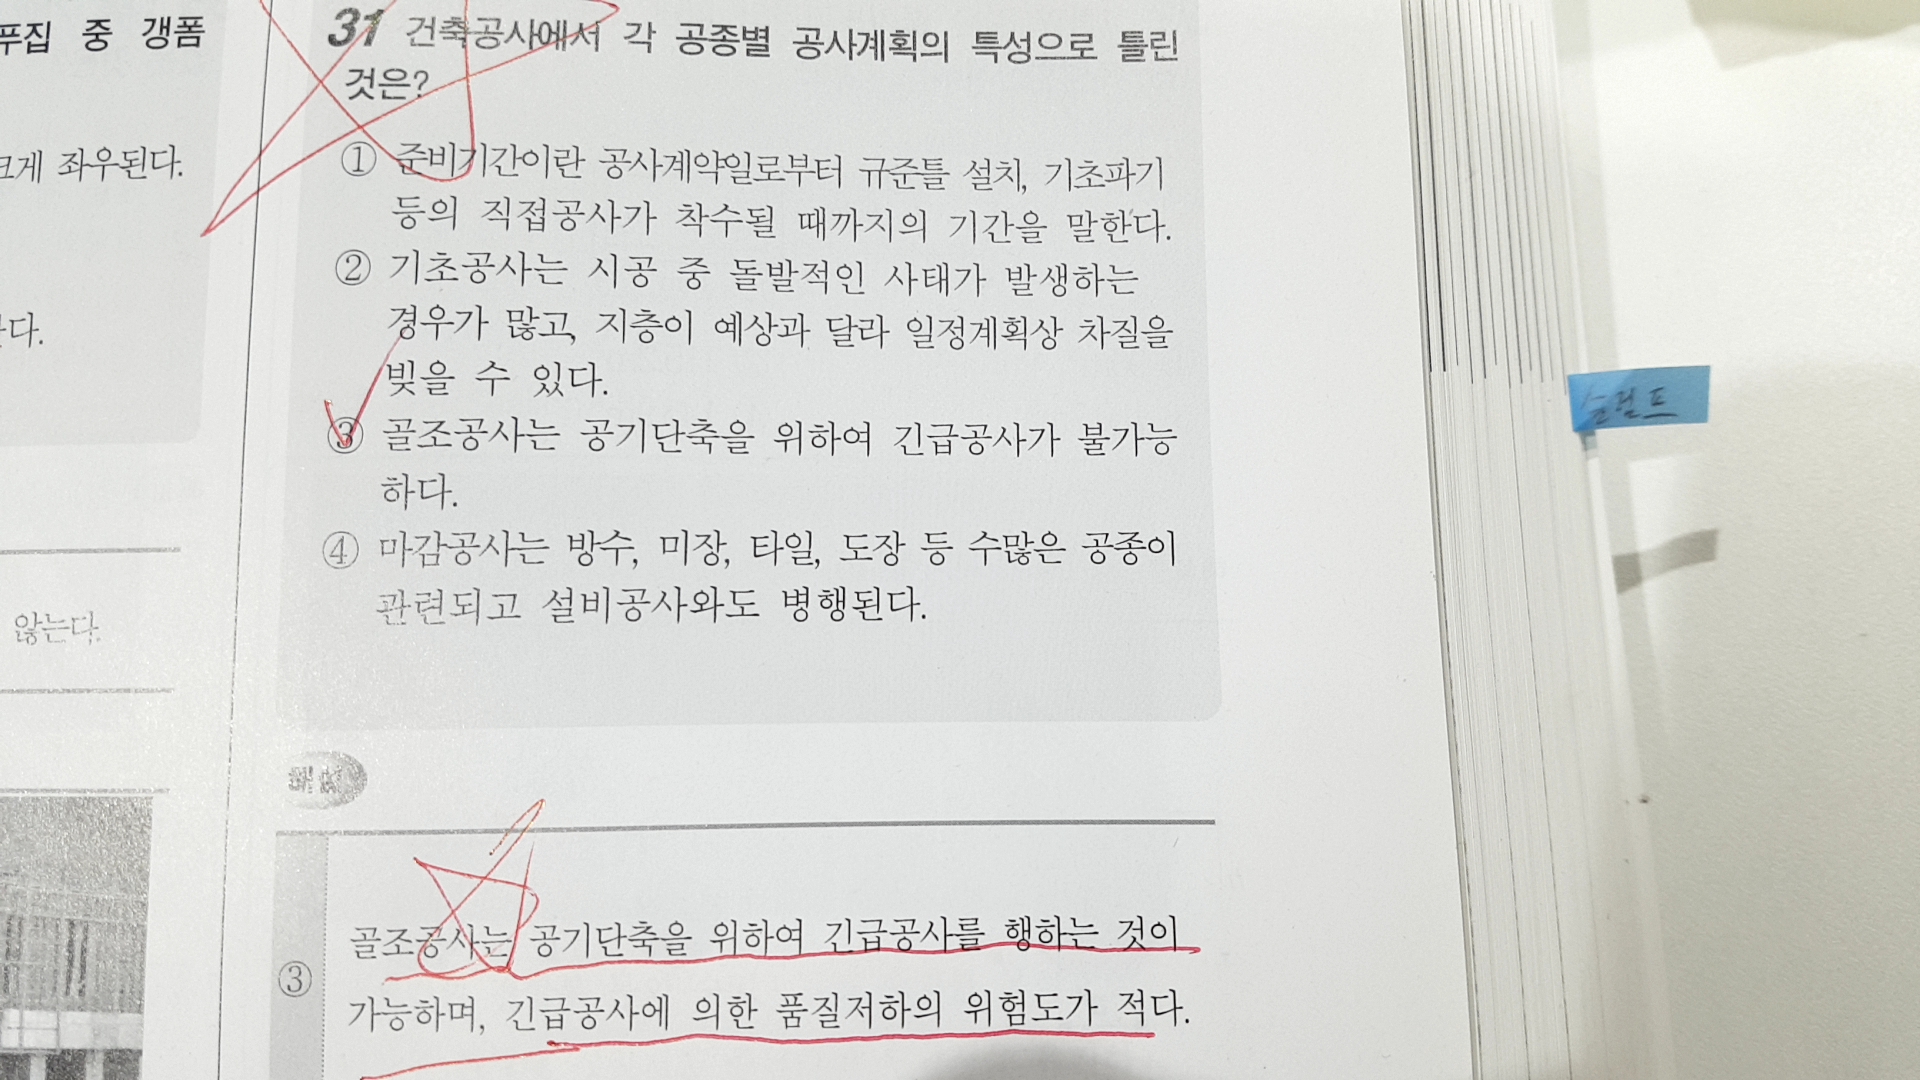 푸집 중 갱폼
크게 좌우된다.
다.
않는다.
31 건축공사에서 각 공종별 공사계획의 특성으로 틀린
것은?
① 준비기간이란 공사계약일로부터 규준틀 설치, 기초파기
등의 직접공사가 착수될 때까지의 기간을 말한다.
② 기초공사는 시공 중 돌발적인 사태가 발생하는
경우가 많고, 지층이 예상과 달라 일정계획상 차질을
빚을 수 있다.
③ 골조공사는 공기단축을 위하여 긴급공사가 불가능
하다.
④ 마감공사는 방수, 미장, 타일, 도장 등 수많은 공종이
관련되고 설비공사와도 병행된다.
해설
③
골조공사는 공기단축을 위하여 긴급공사를 행하는 것이
가능하며, 긴급공사에 의한 품질저하의 위험도가 적다.
슬럼프